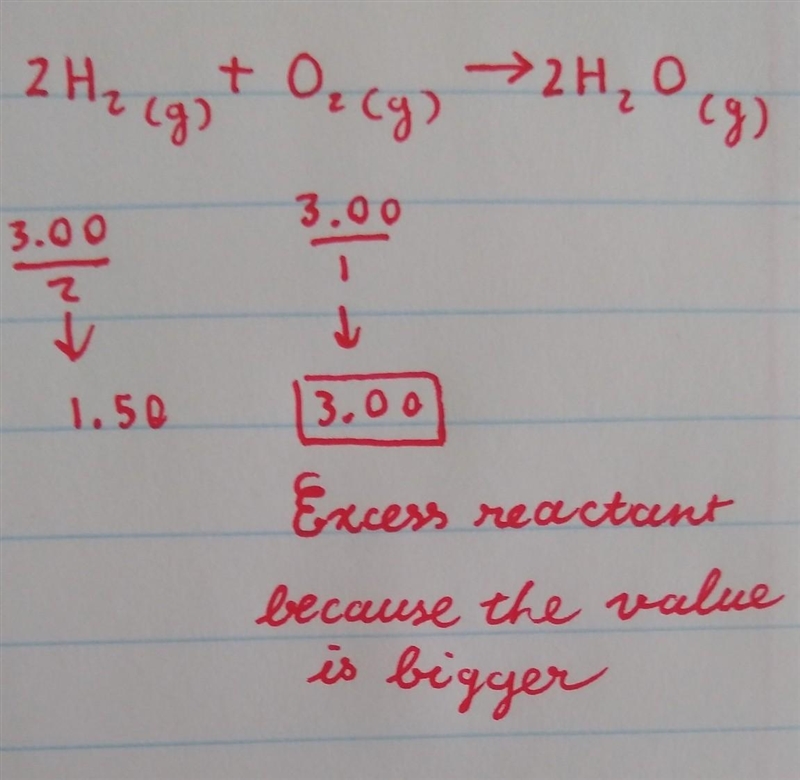 2H₂(g) + O₂(g) → 2H₂O(g)
3.00 3.00
2 1
↓ ↓
1.50 3.00
Excess reactant
because the value
is bigger